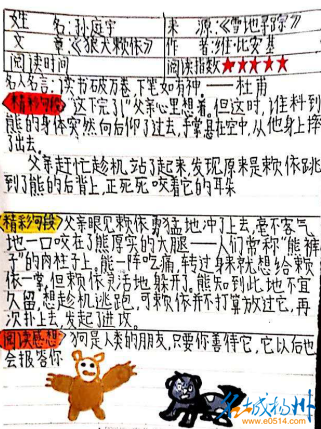 姓 名:孙庭宇 来 源:《雪地寻踪》
文 章《狼犬赖依》 作 者:维·比安基
阅读时间 阅读指数★★★★★
名人名言:读书破万卷,下笔如有神。——杜甫
精彩句段 "这下完了!"父亲心里想着。但这时,谁料到
熊的身体突然向后仰了过去,手掌悬在空中,从他身上摔
了出去。
父亲赶忙趁机站了起来,发现原来是赖依跳
到了熊的后背上,正死死咬着它的耳朵
精彩句段 父亲眼见赖依勇猛地冲上去,毫不客气
地一口咬在了熊厚实的大腿——人们常称"熊裤
子"的肉柱子上。熊一阵吃痛,转过身来就想给赖
依一掌,但赖依灵活地躲开了。熊知到此地不宜
久留,想趁机逃跑,可赖依并不打算放过它,再
次扑上去,发起了进攻。
阅读感想 狗是人类的朋友,只要你善待它,它以后也
会报答你
名城扬州
www.e0514.com